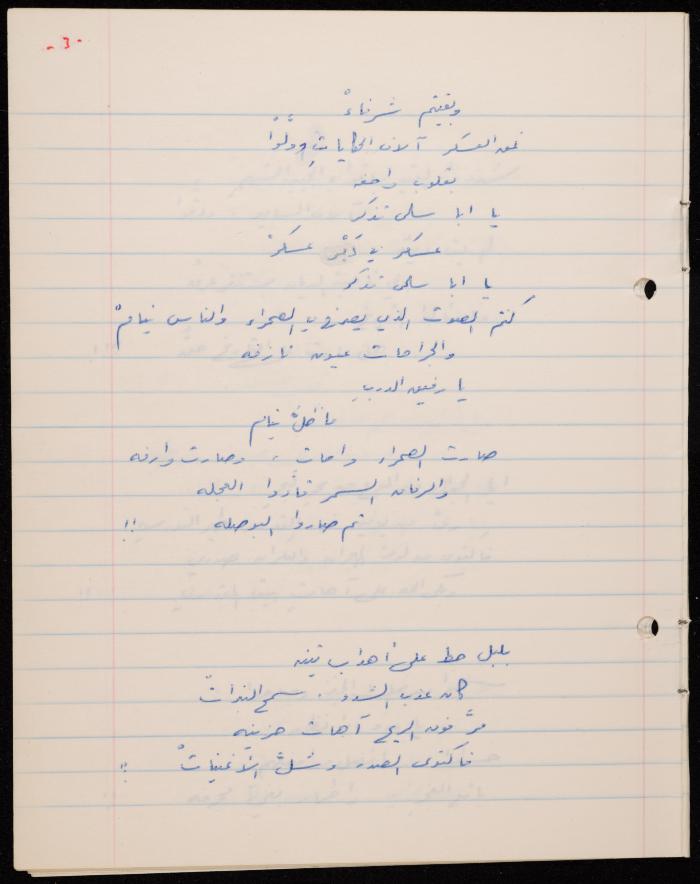 - ٣ -
وبقيتم شرفاءْ
العسكر آلاف الحكايات وولّوا
بقلوب واجفه
يا ابا سلمى تذكر
عسكر في عسكرْ
يا ابا سلمى تذكر
كنتم الصوت الذي يصرخ في الصحراء والناس نيامْ
والجراحات عيون نازفه
يا رفيق الدربِ
ما ظلّ نيام
صارت الصحراء واحات ، وصارت وارفه
والرفاق السمر قادوا العجله
ثم صاروا البوصله !!
بلبل حط على أهداب تينه
كان عذب الشدو . سمح النبراتْ
مرَّ فوق الريح آهات حزينه
فاكتوى الصدر وشلّ الأغنياتْ !!